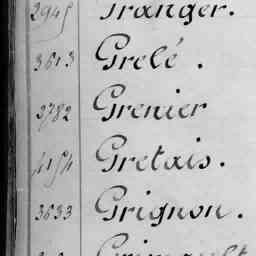 2945 Granger.
3613 Grelé.
3782 Grenier
4154 Gretais.
3633 Grignon.
Grimault